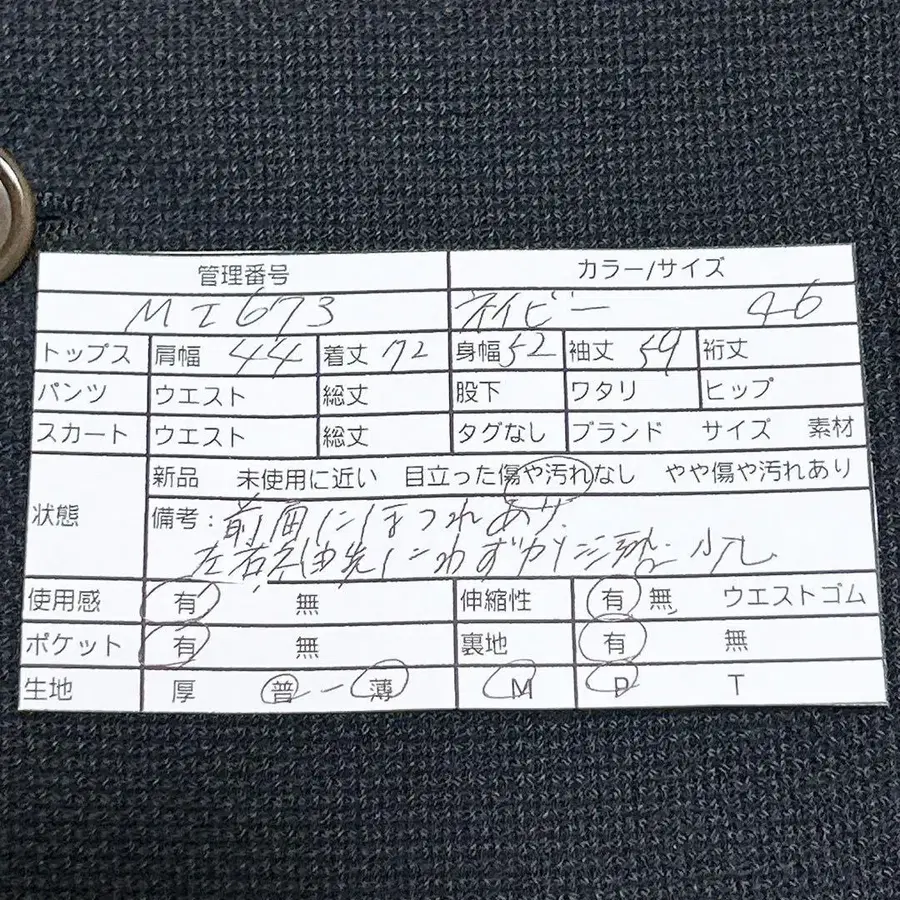 管理番号 カラー/サイズ
MI673 ネイビー 46
トップス 肩幅 44 着丈 72 身幅 52 袖丈 59 裄丈
パンツ ウエスト 総丈 股下 ワタリ ヒップ
スカート ウエスト 総丈 タグなし ブランド サイズ 素材
新品 未使用に近い 目立った傷や汚れなし やや傷や汚れあり
状態
備考：前面にほつれあり
左右袖先にわずかに
使用感 有 無 伸縮性 有 無 ウエストゴム
ポケット 有 無 裏地 有 無
生地 厚 普 ー 薄 M P T